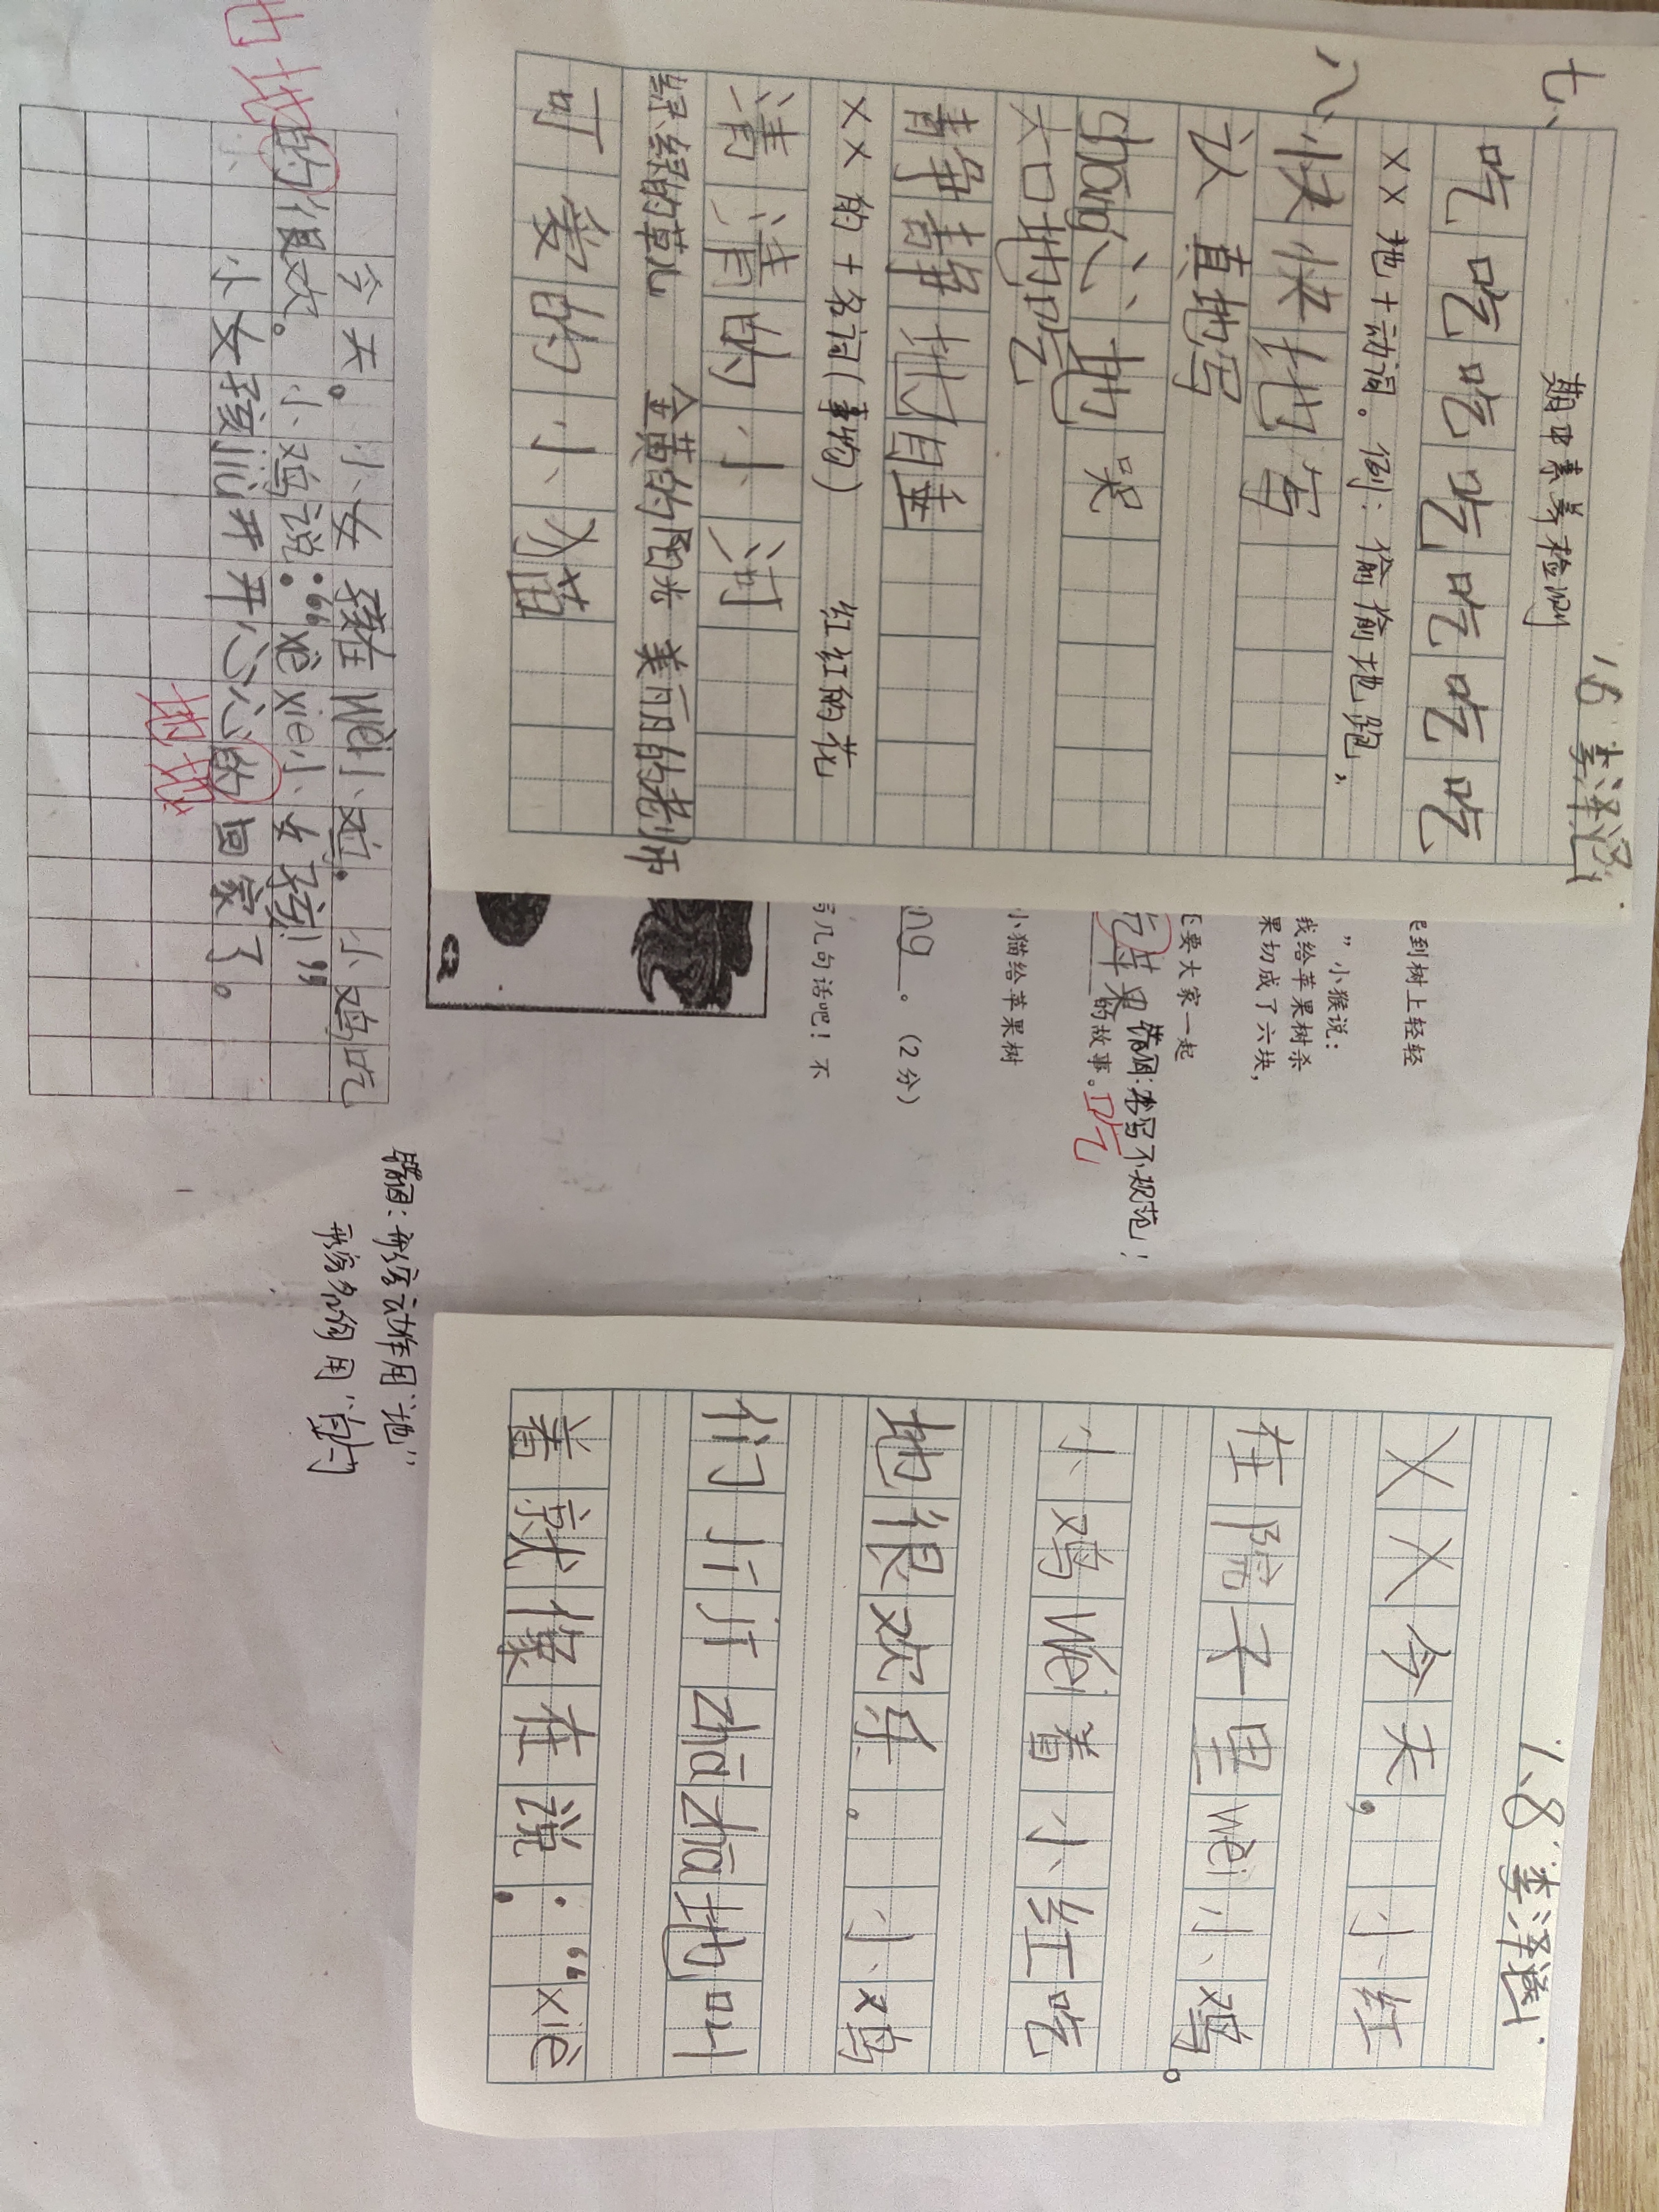 1.6 李泽
期中素养检测
七、
吃吃吃吃吃吃吃
××地+动词。例：偷偷地跑，
八、
快快地写
认真地写
shāng心地哭
大口地吃
静静地睡
××的+名词(事物) 红红的花
清清的小河
绿绿的草儿 金黄的阳光 美丽的老师
可爱的小猫
飞到树上轻轻
”小猴说：
我给苹果树杀
果切成了六块，
还要大家一起
吃苹果的故事。
错因：书写不规范！
吃
小猫给苹果树
ng。(2分)
写几句话吧！不
今天。小女孩在wèi小鸡。小鸡吃
的很欢。小鸡说：“xièxie小女孩！”
小女孩儿开开心心的回家了。
地
地地
错因：形容动作用“地”
形容名词用“的”
1.8 李泽
××今天，小红
在院子里wèi小鸡。
小鸡wéi着小红吃
地很欢乐。小鸡
们jījī zhāzhā地叫
着就像在说：“xiè